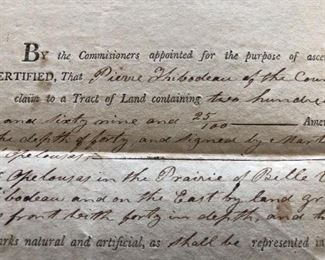 BY the Commisioners appointed for the purpose of asce
ERTIFIED, That Pierre Thibodeau of the Cou
claim to a Tract of Land containing two hundre
and sixty nine and 25/100 Ame
the depth of forty and signed by Mart
Opelousas
Opelousas in the Prairie of Belle
ibodeau and on the East by land gr
front north forty in depth, and h
arks natural and artificial, as shall be represented in